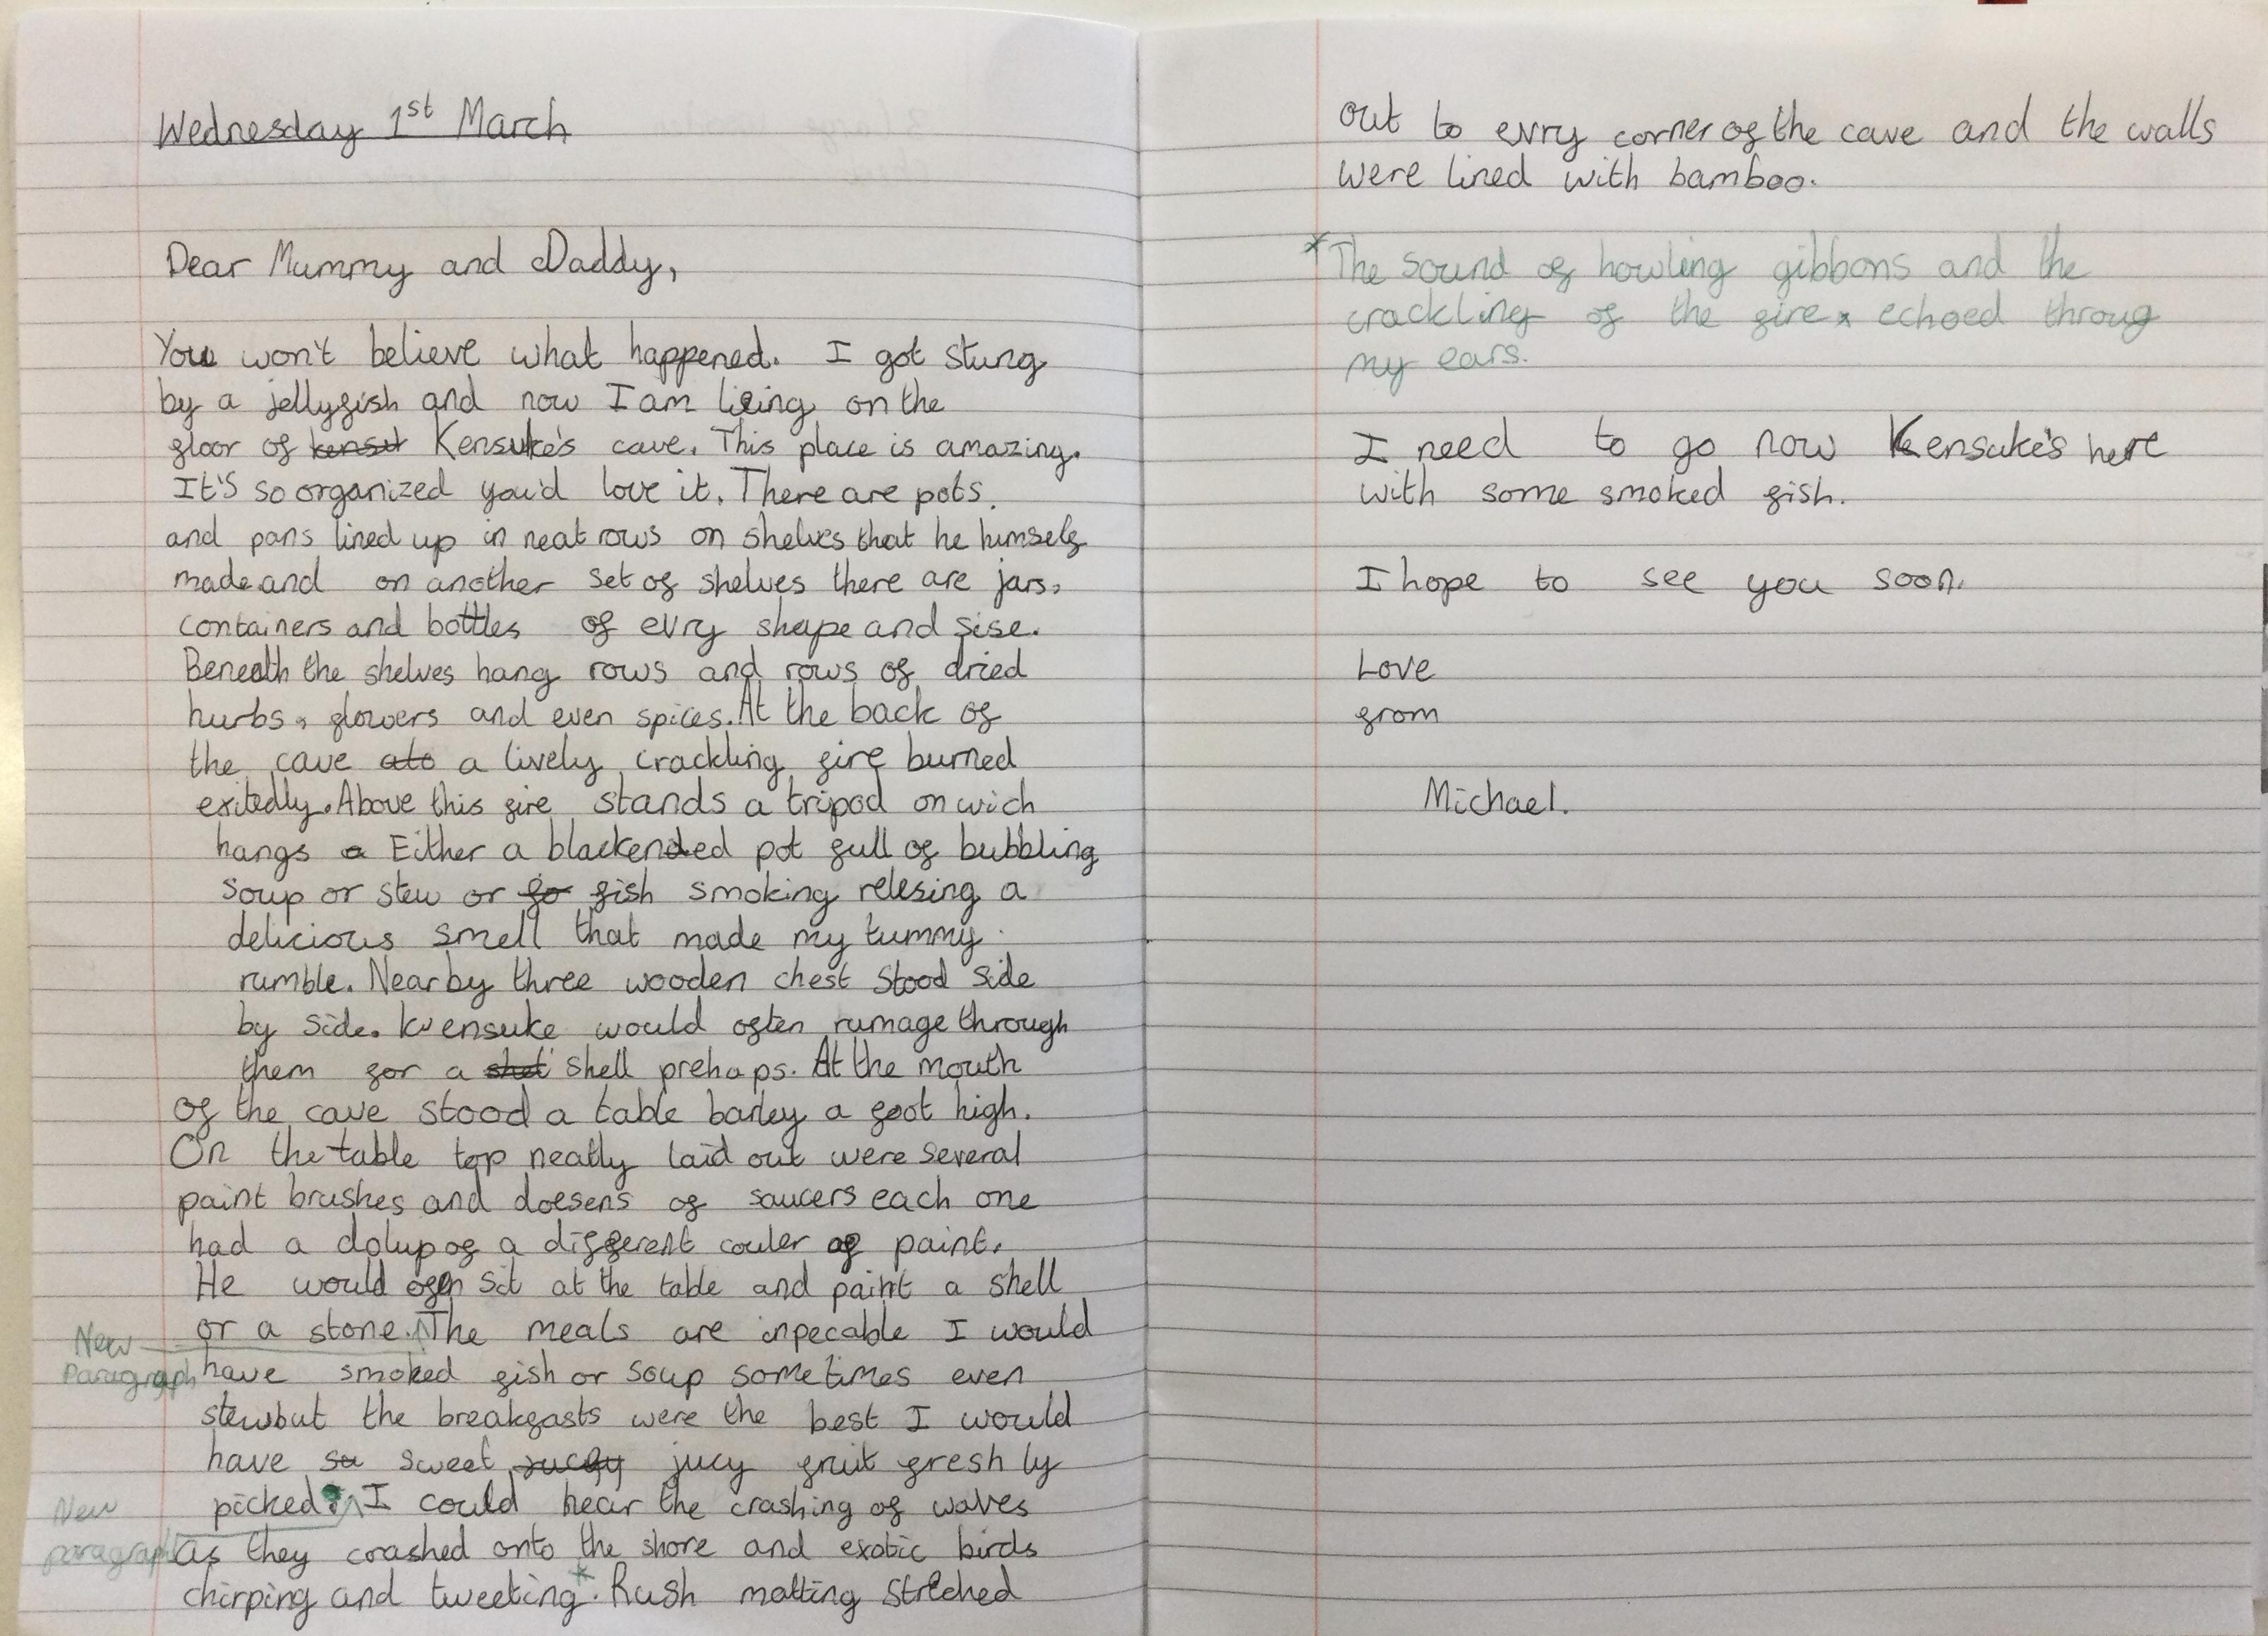 Wednesday 1st March
Dear Mummy and Daddy,
You won't believe what happened. I got stung
by a jellyfish and now I am lieing on the
floor of kensu Kensuke's cave. This place is amazing.
It's so organized you'd love it. There are pots
and pans lined up in neat rows on shelves that he himself
made and on another set of shelves there are jars,
containers and bottles of evry shape and sise.
Beneath the shelves hang rows and rows of dried
hurbs, flowers and even spices. At the back of
the cave a lively crackling fire burned
exitedly. Above this fire stands a tripod on wich
hangs a Either a blackended pot full of bubbling
soup or stew or fo fish smoking relesing a
delicious smell that made my tummy
rumble. Nearby three wooden chest stood side
by side. Kensuke would often rumage through
them for a shell prehaps. At the mouth
of the cave stood a table barley a foot high.
On the table top neatly laid out were several
paint brushes and doesens of saucers each one
had a dolup of a different couler of paint.
He would ofen sit at the table and paint a shell
New
or a stone. The meals are inpecable I would
paragraph have smoked fish or soup sometimes even
stew but the breakfasts were the best I would
have su sweet jucy fruit freshly
New
picked. I could hear the crashing of waves
paragraph as they crashed onto the shore and exotic birds
chirping and tweeting*. Rush matting streched
out to evry corner of the cave and the walls
were lined with bamboo.
*The sound of howling gibbons and the
crackling of the fire echoed throug
my ears.
I need to go now Kensuke's here
with some smoked fish.
I hope to see you soon.
Love
from
Michael.